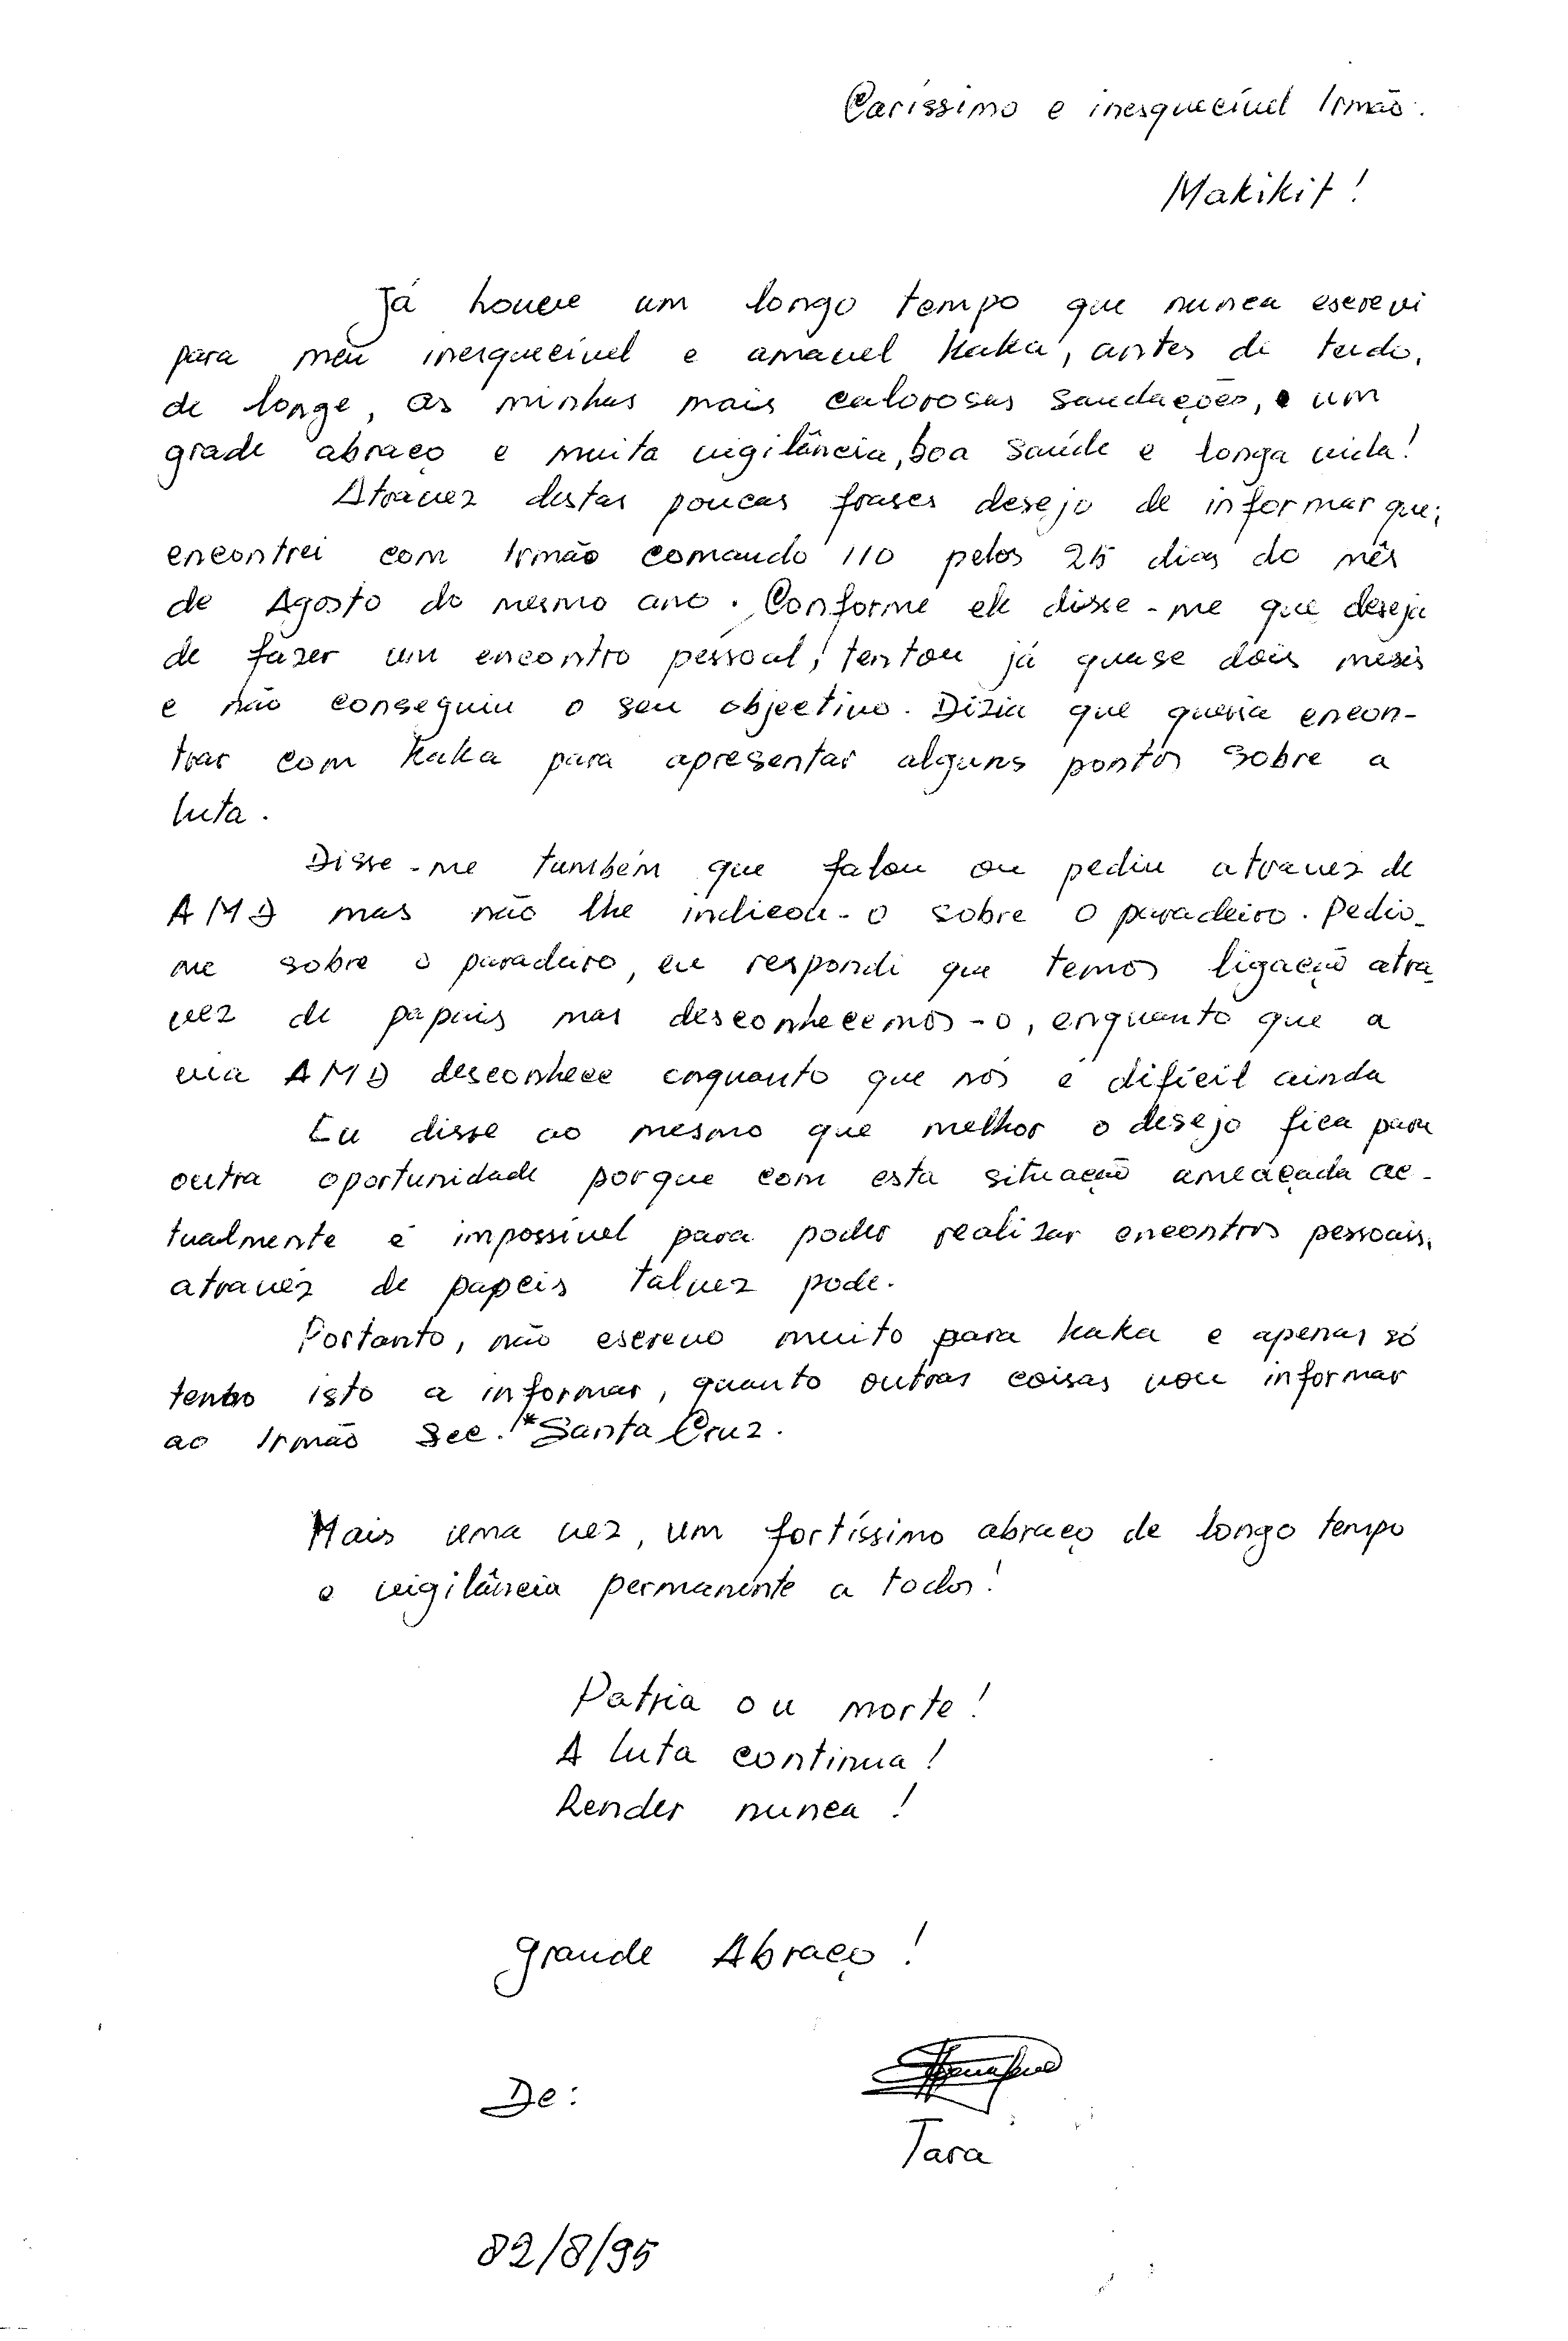 Caríssimo e inesquecível Irmão.
Makikit!
Já houve um longo tempo que nunca escrevi
para meu inesquecível e amavel Kaka, antes de tudo,
de longe, as minhas mais calorosas saudações, e um
grade abraço e muita vigilância, boa saúde e longa vida!
Atravez destas poucas frases desejo de informar que;
encontrei com Irmão comando 110 pelos 25 dias do mês
de Agosto do mesmo ano. Conforme ele disse-me que deseja
de fazer um encontro pessoal, tentou já quase dois meses
e não conseguiu o seu objectivo. Dizia que queria encon-
trar com Kaka para apresentar alguns pontos sobre a
luta.
Disse-me também que falou ou pediu atravez de
AMD mas não lhe indicou-o sobre o paradeiro. Pediu-
me sobre o paradeiro, eu respondi que temos ligação atra-
vez de papeis mas desconhecemos-o, enquanto que a
via AMD desconhece enquanto que nós é difícil ainda
Eu disse ao mesmo que melhor o desejo fica para
outra oportunidade porque com esta situação ameaçada ac-
tualmente é impossível para poder realizar encontros pessoais,
atravéz de papeis talvez pode.
Portanto, não escrevo muito para Kaka e apenas só
tenho isto a informar, quanto outras coisas vou informar
ao Irmão Sec. !*Santa Cruz.
Mais uma vez, um fortíssimo abraço de longo tempo
e vigilância permanente a todos!
Patria ou morte!
A luta continua!
Render nunca!
Grande Abraço!
De:
Tara
82/8/95